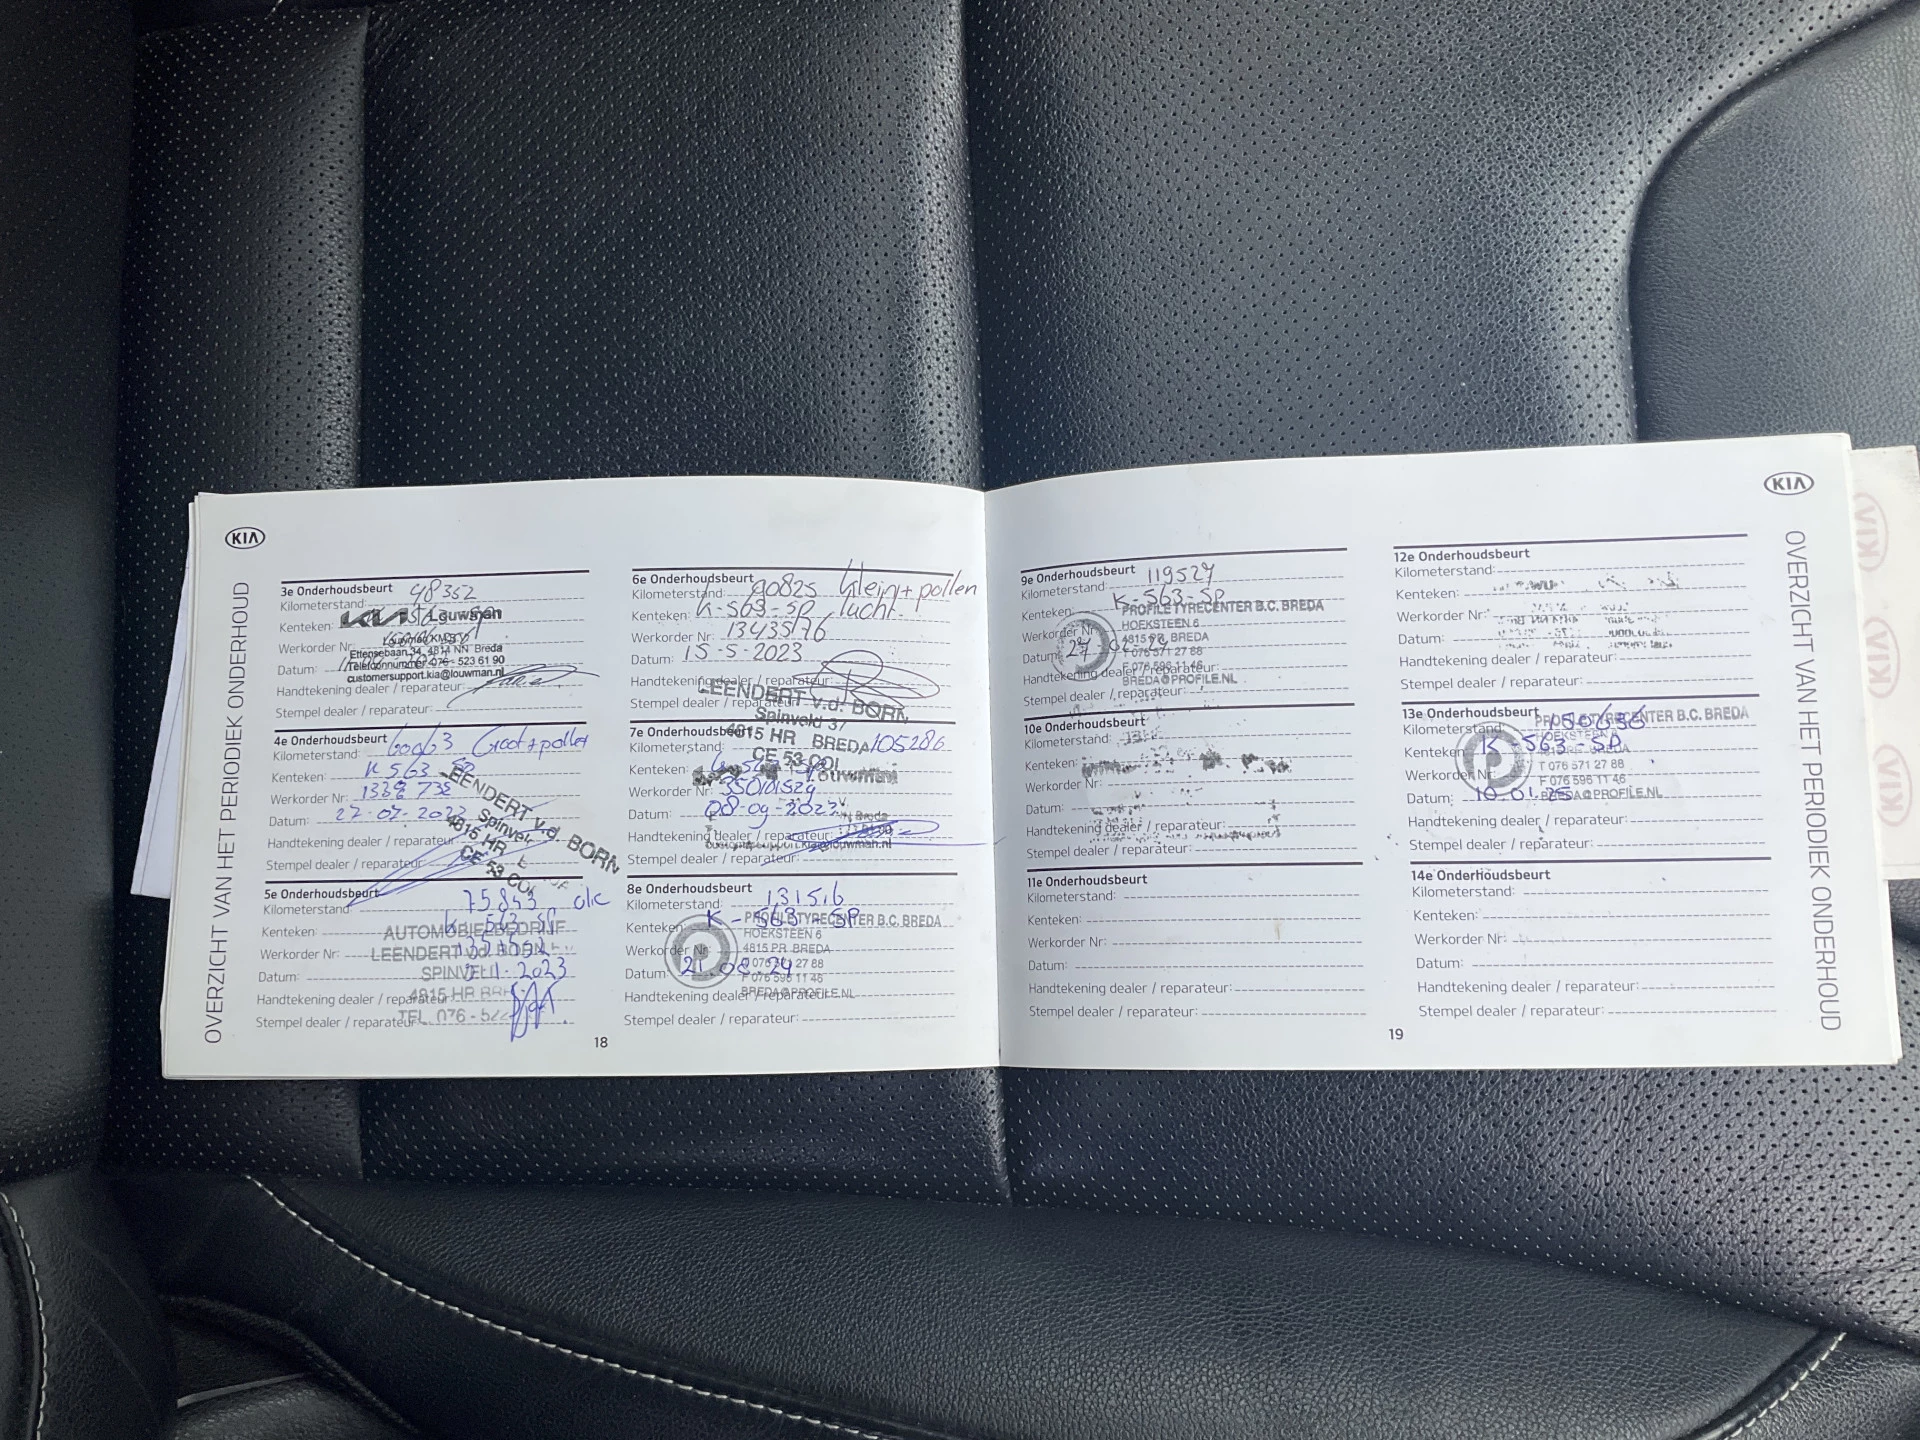 KIA
OVERZICHT VAN HET PERIODIEK ONDERHOUD
3e Onderhoudsbeurt
Kilometerstand: 48352
Kenteken:
KIA Louwman
Werkorder Nr:
Ettensebaan 34, 4814 NN Breda
Datum:
Telefoonnummer 076 - 523 61 90
customersupport.kia@louwman.nl
Handtekening dealer / reparateur:
Stempel dealer / reparateur:
4e Onderhoudsbeurt
Kilometerstand: Groot + pollen
Kenteken: K 563 SP
Werkorder Nr:
Datum: 27-07-2022
LEENDERT v.d. BORN
4815 HR
CE 53 COL
Handtekening dealer / reparateur:
Stempel dealer / reparateur:
5e Onderhoudsbeurt
Kilometerstand: 75843 olie
Kenteken: K-563-SP
AUTOMOBIELBEDRIJF
Werkorder Nr:
LEENDERT v.d. BORN
Datum: 2023
Handtekening dealer / reparateur:
4815 HR
Stempel dealer / reparateur:
TEL. 076 - 522
6e Onderhoudsbeurt
Kilometerstand: 90825 Klein + pollen
Kenteken: K-563-SP lucht
Werkorder Nr: 13435176
Datum: 15-5-2023
Handtekening dealer / reparateur:
LEENDERT v.d. BORN
Stempel dealer / reparateur:
Spinveld 37
4815 HR BREDA
CE 53 COL
7e Onderhoudsbeurt
Kilometerstand: 105286
Kenteken:
Louwman
Werkorder Nr: 350101529
Datum: 08-09-2023
Breda
Handtekening dealer / reparateur:
customersupport.kia@louwman.nl
Stempel dealer / reparateur:
8e Onderhoudsbeurt
Kilometerstand: 131516
Kenteken: K-563-SP
PROFILE TYRECENTER B.C. BREDA
HOEKSTEEN 6
Werkorder Nr:
4815 PR BREDA
Datum: 21.08.24
T 076 571 27 88
F 076 596 11 46
Handtekening dealer / reparateur:
BREDA@PROFILE.NL
Stempel dealer / reparateur:
18
KIA
OVERZICHT VAN HET PERIODIEK ONDERHOUD
9e Onderhoudsbeurt
Kilometerstand: 119527
Kenteken: K-563-SP
PROFILE TYRECENTER B.C. BREDA
HOEKSTEEN 6
Werkorder Nr:
4815 PR BREDA
Datum: 27
T 076 571 27 88
F 076 596 11 46
Handtekening dealer / reparateur:
BREDA@PROFILE.NL
Stempel dealer / reparateur:
10e Onderhoudsbeurt
Kilometerstand:
Kenteken:
Werkorder Nr:
Datum:
Handtekening dealer / reparateur:
Stempel dealer / reparateur:
11e Onderhoudsbeurt
Kilometerstand:
Kenteken:
Werkorder Nr:
Datum:
Handtekening dealer / reparateur:
Stempel dealer / reparateur:
12e Onderhoudsbeurt
Kilometerstand:
Kenteken:
Werkorder Nr:
Datum:
Handtekening dealer / reparateur:
Stempel dealer / reparateur:
13e Onderhoudsbeurt
PROFILE TYRECENTER B.C. BREDA
Kilometerstand:
HOEKSTEEN 6
Kenteken: K-563-SP
4815 PR BREDA
T 076 571 27 88
Werkorder Nr:
F 076 596 11 46
Datum: 10.01.25
BREDA@PROFILE.NL
Handtekening dealer / reparateur:
Stempel dealer / reparateur:
14e Onderhoudsbeurt
Kilometerstand:
Kenteken:
Werkorder Nr:
Datum:
Handtekening dealer / reparateur:
Stempel dealer / reparateur:
19
KIA
KIA
KIA